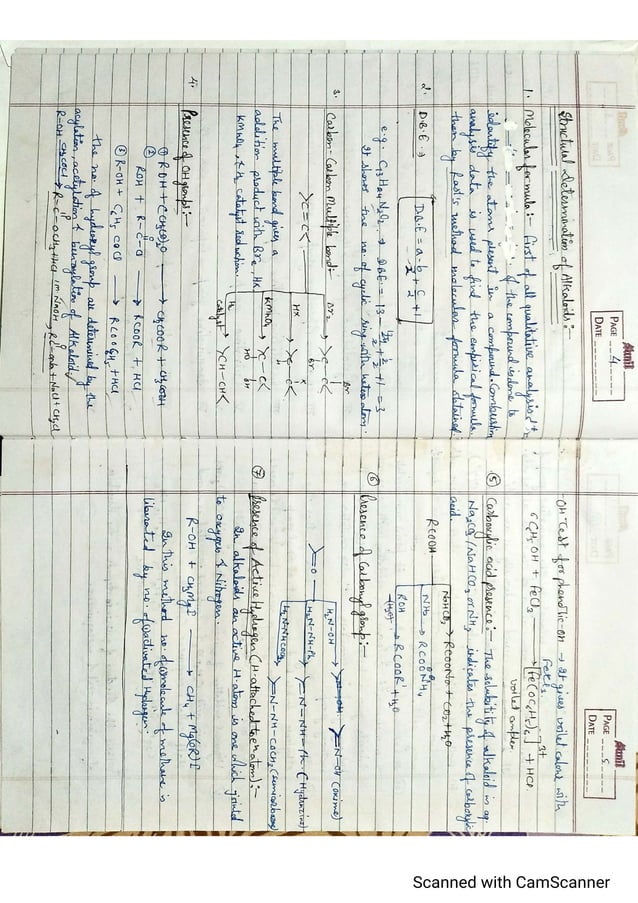 Akriti
PAGE 4
DATE
Structural Determination of Alkaloids:-
1. Molecular formula:- first of all qualitative analysis,
of the compound is done to
identify the atoms present in a compound. Combustion
analysis data is used to find the empirical formula,
then by Rast's method molecular formula obtained.
2. D.B.E →
D.B.E = a - b/2 + c/2 + 1
It shows the no of cyclic ring with hetero atom.
3. Carbon-Carbon Multiple bond:-
>C=C<
Br2
HX
KMnO4
H2 catalyst → >CH-CH<
The multiple bond gives a
addition product with Br2, HX
KMnO4, & H2 catalyst reduction.
4. Presence of OH groups:-
① ROH + (CH3CO)2O → CH3COOR + CH3COOH
② ROH + R-C-Cl → RCOOR + HCl
③ R-OH + C6H5COCl → RCOOC6H5 + HCl
the no. of hydroxyl group are determined by the
acylation, acetylation & benzoylation of Alkaloid;
Akriti
PAGE 5
DATE
-OH Test for phenolic-OH → It gives voilet colour with
FeCl3.
6C6H5OH + FeCl3 → [Fe(OC6H5)6]3+ + HCl
voilet complex
⑤ Carboxylic acid presence:- The solubility of alkaloid in aq.
Na2CO3/NaHCO3 or NH3 indicates the presence of carboxylic
acid.
RCOOH
NaHCO3 → RCOONa + CO2 + H2O
NH3 → RCOONH4
ROH
→ RCOOR + H2O
⑥ Presence of Carbonyl group:-
>C=O
H2N-OH → >C=N-OH (oxime)
H2N-NH-Ph → >C=N-NH-Ph (Hydrazine)
⑦ Presence of Active Hydrogen (H-attached to e n atom):-
In alkaloids an active H-atom is one which joined
to oxygen & Nitrogen.
R-OH + CH3MgI → CH4 + Mg(OR)I
In this method no. of molecule of methane is
liberated by no. of activated Hydrogen.
Scanned with CamScanner